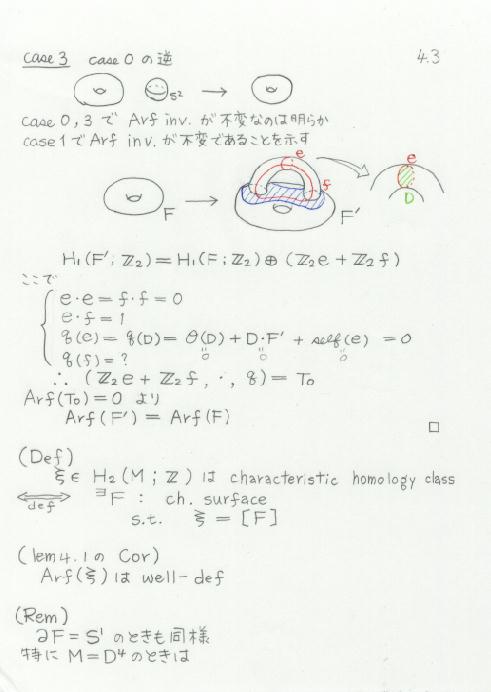 case 3 case 0 の逆 4.3
S²
case 0,3 で Arf inv. が不変なのは明らか
case 1 で Arf inv. が不変であることを示す
e
e
f
D
F
F'
H₁(F';ℤ₂) = H₁(F;ℤ₂) ⊕ (ℤ₂e + ℤ₂f)
ここで
e・e = f・f = 0
e・f = 1
q(e) = q(D) = θ(D) + D・F' + self(e) = 0
q(f) = ? 0 0 0
∴ (ℤ₂e + ℤ₂f, ・, q) = T₀
Arf(T₀) = 0 より
Arf(F') = Arf(F)
□
(Def)
ξ ∈ H₂(M;ℤ) は characteristic homology class
⟺ def ∃F : ch. surface
s.t. ξ = [F]
(lem 4.1 の Cor)
Arf(ξ) は well-def
(Rem)
∂F = S¹ のときも同様
特に M = D⁴ のときは